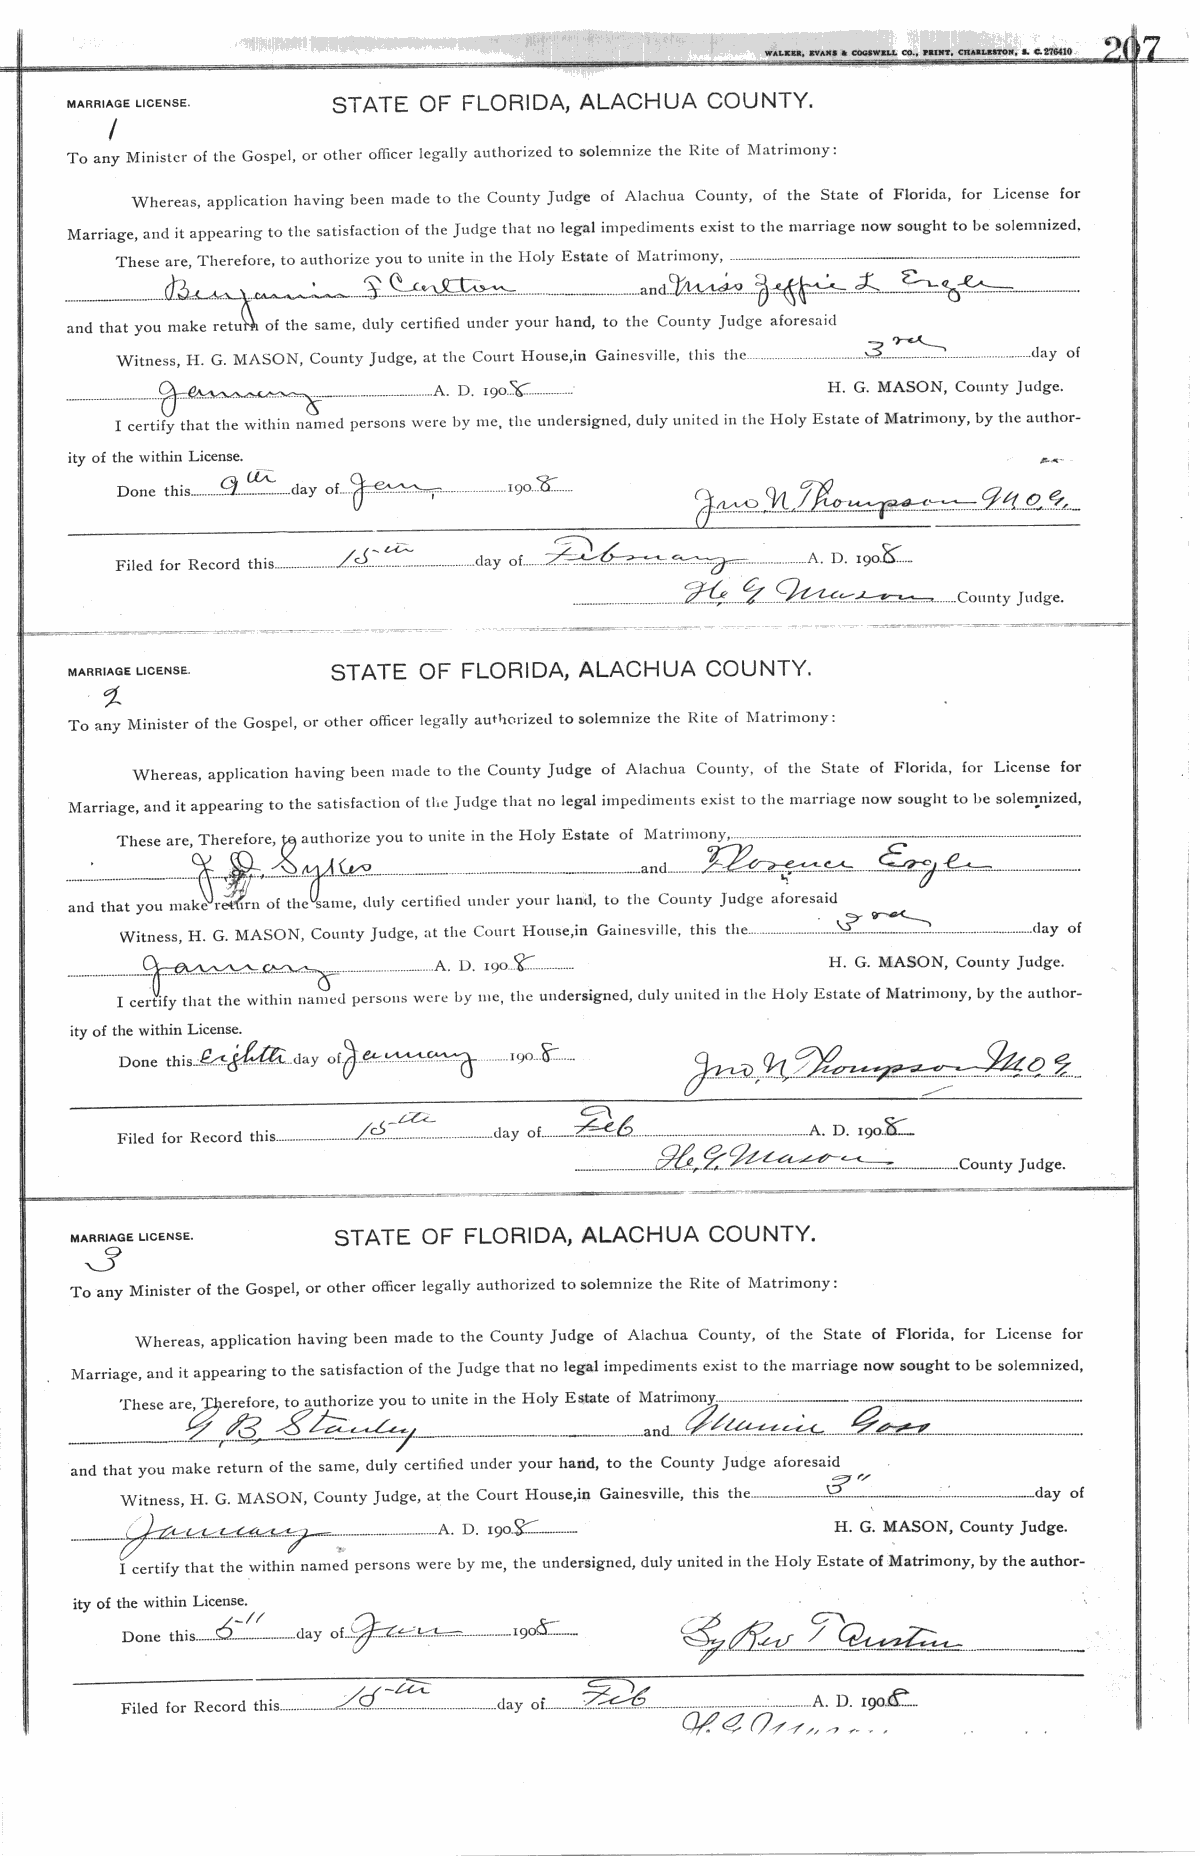 WALKER, EVANS & COGSWELL CO., PRINT, CHARLESTON, S. C. 276410 207
MARRIAGE LICENSE. STATE OF FLORIDA, ALACHUA COUNTY.
1
To any Minister of the Gospel, or other officer legally authorized to solemnize the Rite of Matrimony:
Whereas, application having been made to the County Judge of Alachua County, of the State of Florida, for License for
Marriage, and it appearing to the satisfaction of the Judge that no legal impediments exist to the marriage now sought to be solemnized,
These are, Therefore, to authorize you to unite in the Holy Estate of Matrimony,
Benjamin F Carlton and Miss Zeffie L Ergle
and that you make return of the same, duly certified under your hand, to the County Judge aforesaid
Witness, H. G. MASON, County Judge, at the Court House, in Gainesville, this the 3rd day of
January A. D. 1908 H. G. MASON, County Judge.
I certify that the within named persons were by me, the undersigned, duly united in the Holy Estate of Matrimony, by the author-
ity of the within License.
Done this 9th day of Jan, 1908 Jno. N. Thompson M.O.G.
Filed for Record this 15th day of February A. D. 1908
H. G. Mason County Judge.
MARRIAGE LICENSE. STATE OF FLORIDA, ALACHUA COUNTY.
2
To any Minister of the Gospel, or other officer legally authorized to solemnize the Rite of Matrimony:
Whereas, application having been made to the County Judge of Alachua County, of the State of Florida, for License for
Marriage, and it appearing to the satisfaction of the Judge that no legal impediments exist to the marriage now sought to be solemnized,
These are, Therefore, to authorize you to unite in the Holy Estate of Matrimony,
J. D. Sykes and Florence Ergle
and that you make return of the same, duly certified under your hand, to the County Judge aforesaid
Witness, H. G. MASON, County Judge, at the Court House, in Gainesville, this the 3rd day of
January A. D. 1908 H. G. MASON, County Judge.
I certify that the within named persons were by me, the undersigned, duly united in the Holy Estate of Matrimony, by the author-
ity of the within License.
Done this Eighth day of January 1908 Jno. N. Thompson M.O.G.
Filed for Record this 15th day of Feb A. D. 1908
H. G. Mason County Judge.
MARRIAGE LICENSE. STATE OF FLORIDA, ALACHUA COUNTY.
3
To any Minister of the Gospel, or other officer legally authorized to solemnize the Rite of Matrimony:
Whereas, application having been made to the County Judge of Alachua County, of the State of Florida, for License for
Marriage, and it appearing to the satisfaction of the Judge that no legal impediments exist to the marriage now sought to be solemnized,
These are, Therefore, to authorize you to unite in the Holy Estate of Matrimony
G. B. Stanley and Mamie Goss
and that you make return of the same, duly certified under your hand, to the County Judge aforesaid
Witness, H. G. MASON, County Judge, at the Court House, in Gainesville, this the 3" day of
January A. D. 1908 H. G. MASON, County Judge.
I certify that the within named persons were by me, the undersigned, duly united in the Holy Estate of Matrimony, by the author-
ity of the within License.
Done this 5" day of Jan 1908 By Rev T Austin
Filed for Record this 15th day of Feb A. D. 1908
H. G. Mason